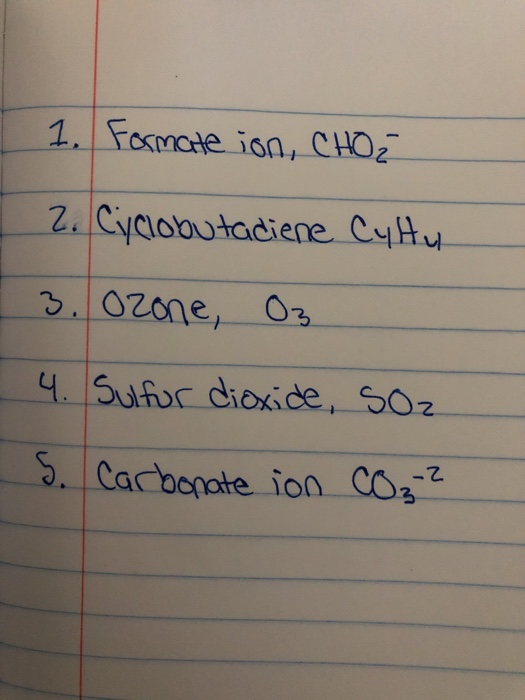 1. Formate ion, CHO₂⁻
2. Cyclobutadiene C₄H₄
3. Ozone, O₃
4. Sulfur dioxide, SO₂
5. Carbonate ion CO₃⁻²